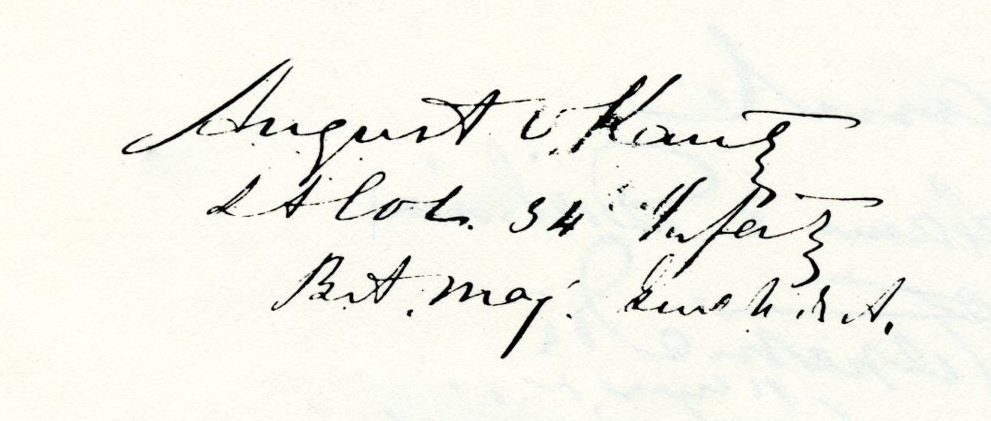 August V. Kautz
Lt Col. 34" Inf'ty
Bvt. Maj. Genl U.S.A.